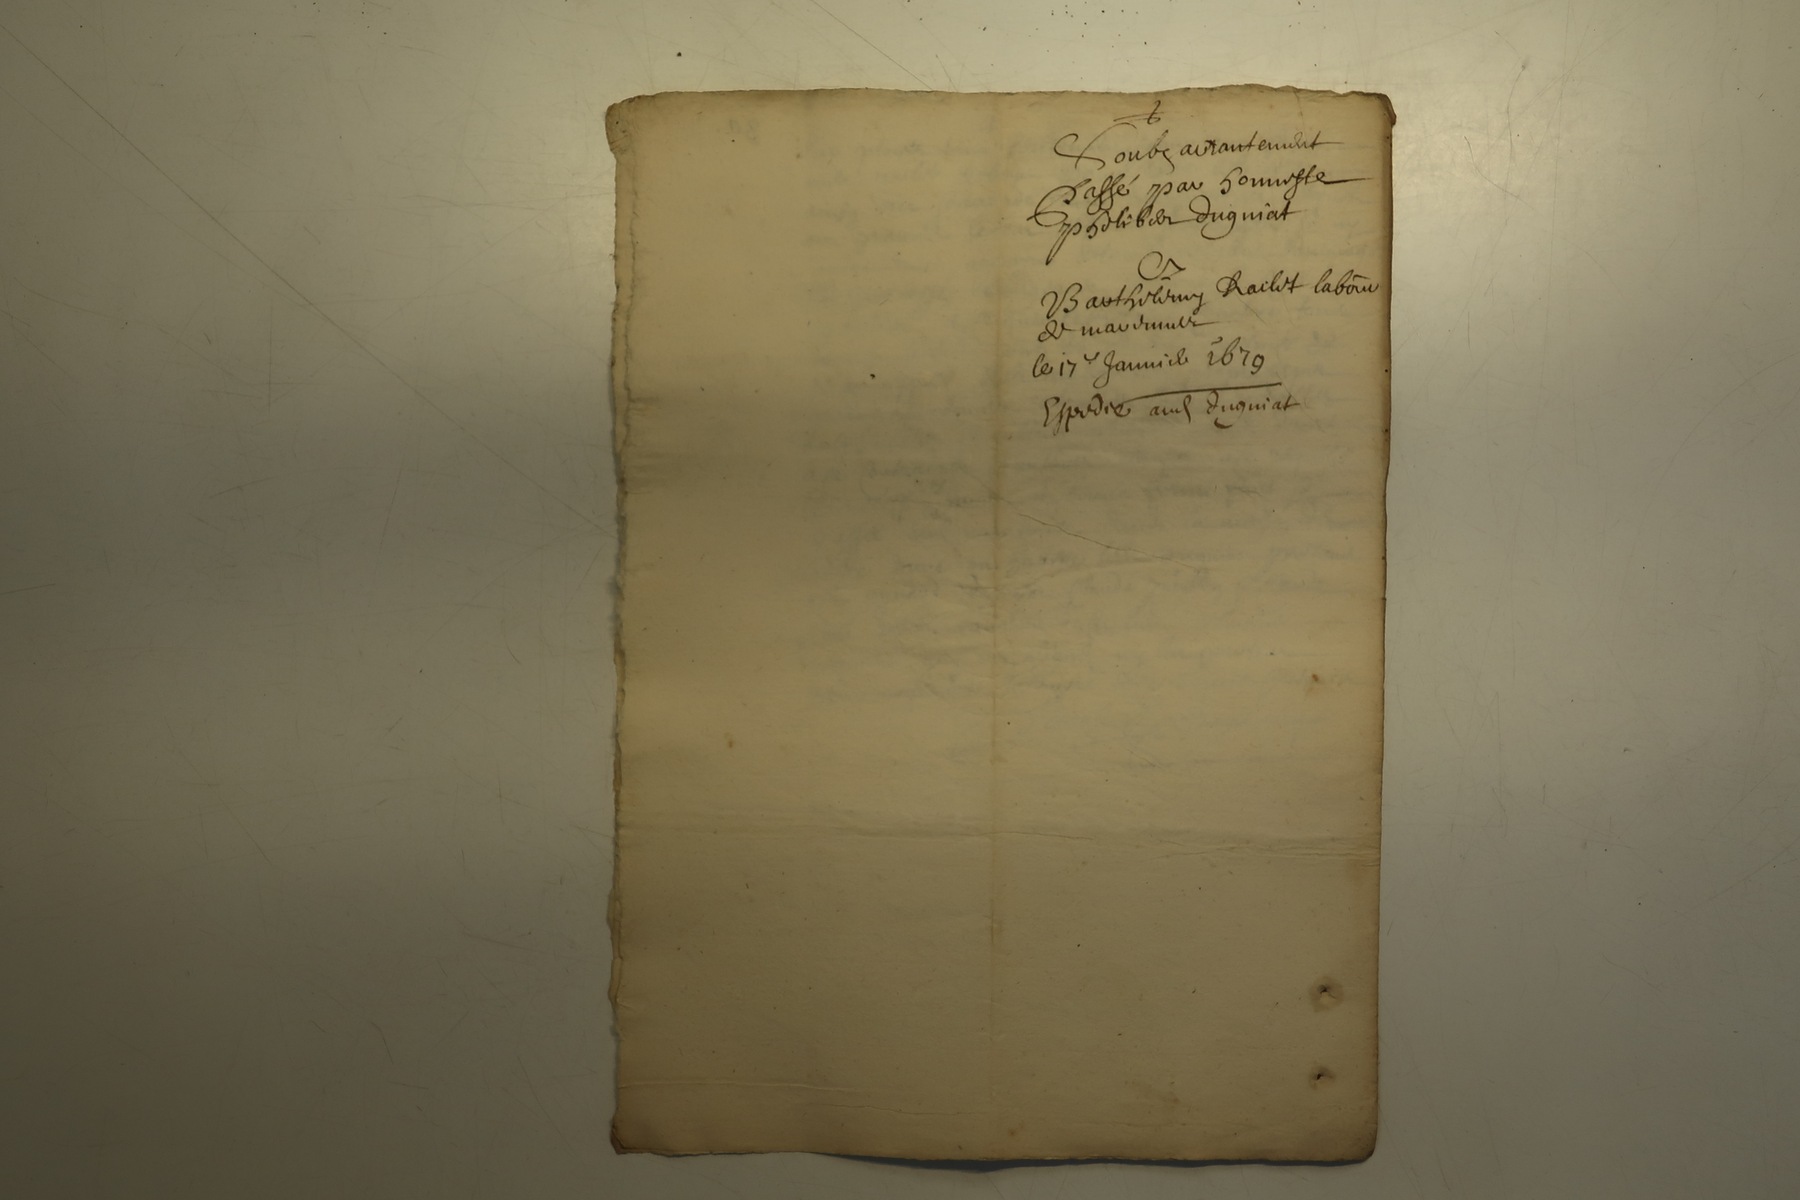 Soubz arrantement
Passé par honneste
philiber Dugniat
Ez
Barthelemy Raclet labōur
de mardonnex
le 17e Janvier 1679
Expedie aud Dugniat